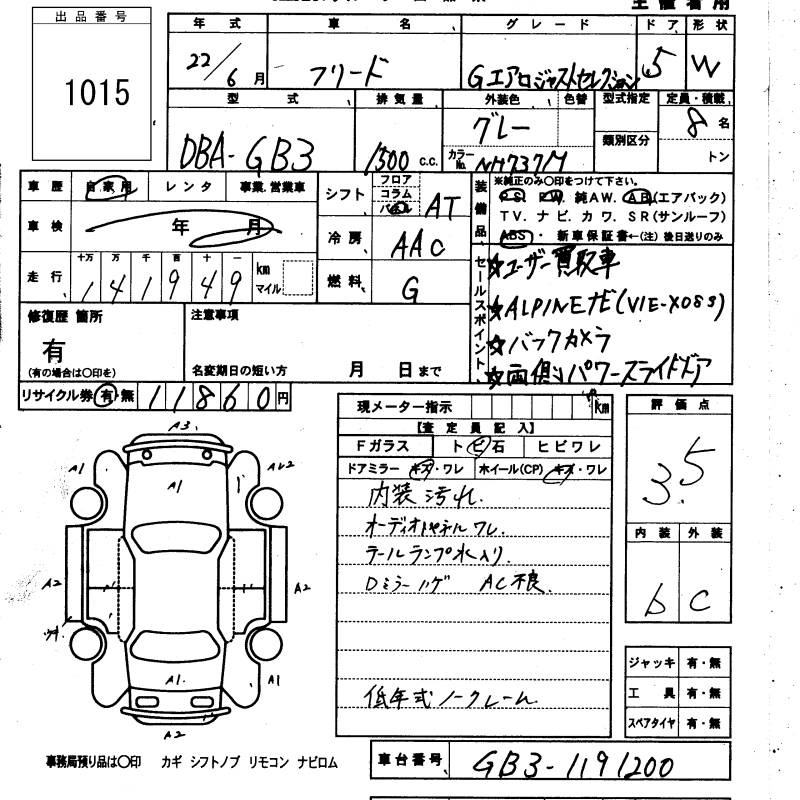 出品番号
1015
年式 車名 グレード ドア 形状
22/6月 フリード Gエアロジャストセレクション 5 W
型式 排気量 外装色 色替 型式指定 定員・積載
DBA-GB3 1500 c.c. グレー 類別区分 8名
カラーNo. NH737M トン
車歴 自家用 レンタ 事業.営業車
車検 年 月
走行 十万 万 千 百 十 一
141949 km マイル
シフト フロア コラム パネル AT
冷房 AAC
燃料 G
装備品 ※純正のみ〇印をつけて下さい。
P.S. P.W. 純AW. A.B.(エアバック)
TV. ナビ. カワ. SR(サンルーフ)
ABS・ 新車保証書←(注) 後日送りのみ
セールスポイント
☆ユーザー買取車
☆ALPINEナビ(VIE-X08S)
☆バックカメラ
☆両側パワースライドドア
修復歴 箇所
有
(有の場合は〇印を)
注意事項
名変期日の短い方 月 日まで
リサイクル券 有・無 11860円
現メーター指示 km
【査定員記入】
Fガラス トビ石 ヒビワレ
ドアミラー キズ・ワレ ホイール(CP) キズ・ワレ
内装汚れ.
オーディオパネルワレ.
テールランプ水入り.
Dミラーハゲ AC不良.
低年式ノークレーム
評価点
3.5
内装 外装
b C
ジャッキ 有・無
工具 有・無
スペアタイヤ 有・無
A3
A1
A1
A2
A2
A1
A1
A1.
A2
事務局預り品は〇印 カギ シフトノブ リモコン ナビロム
車台番号 GB3-1191200